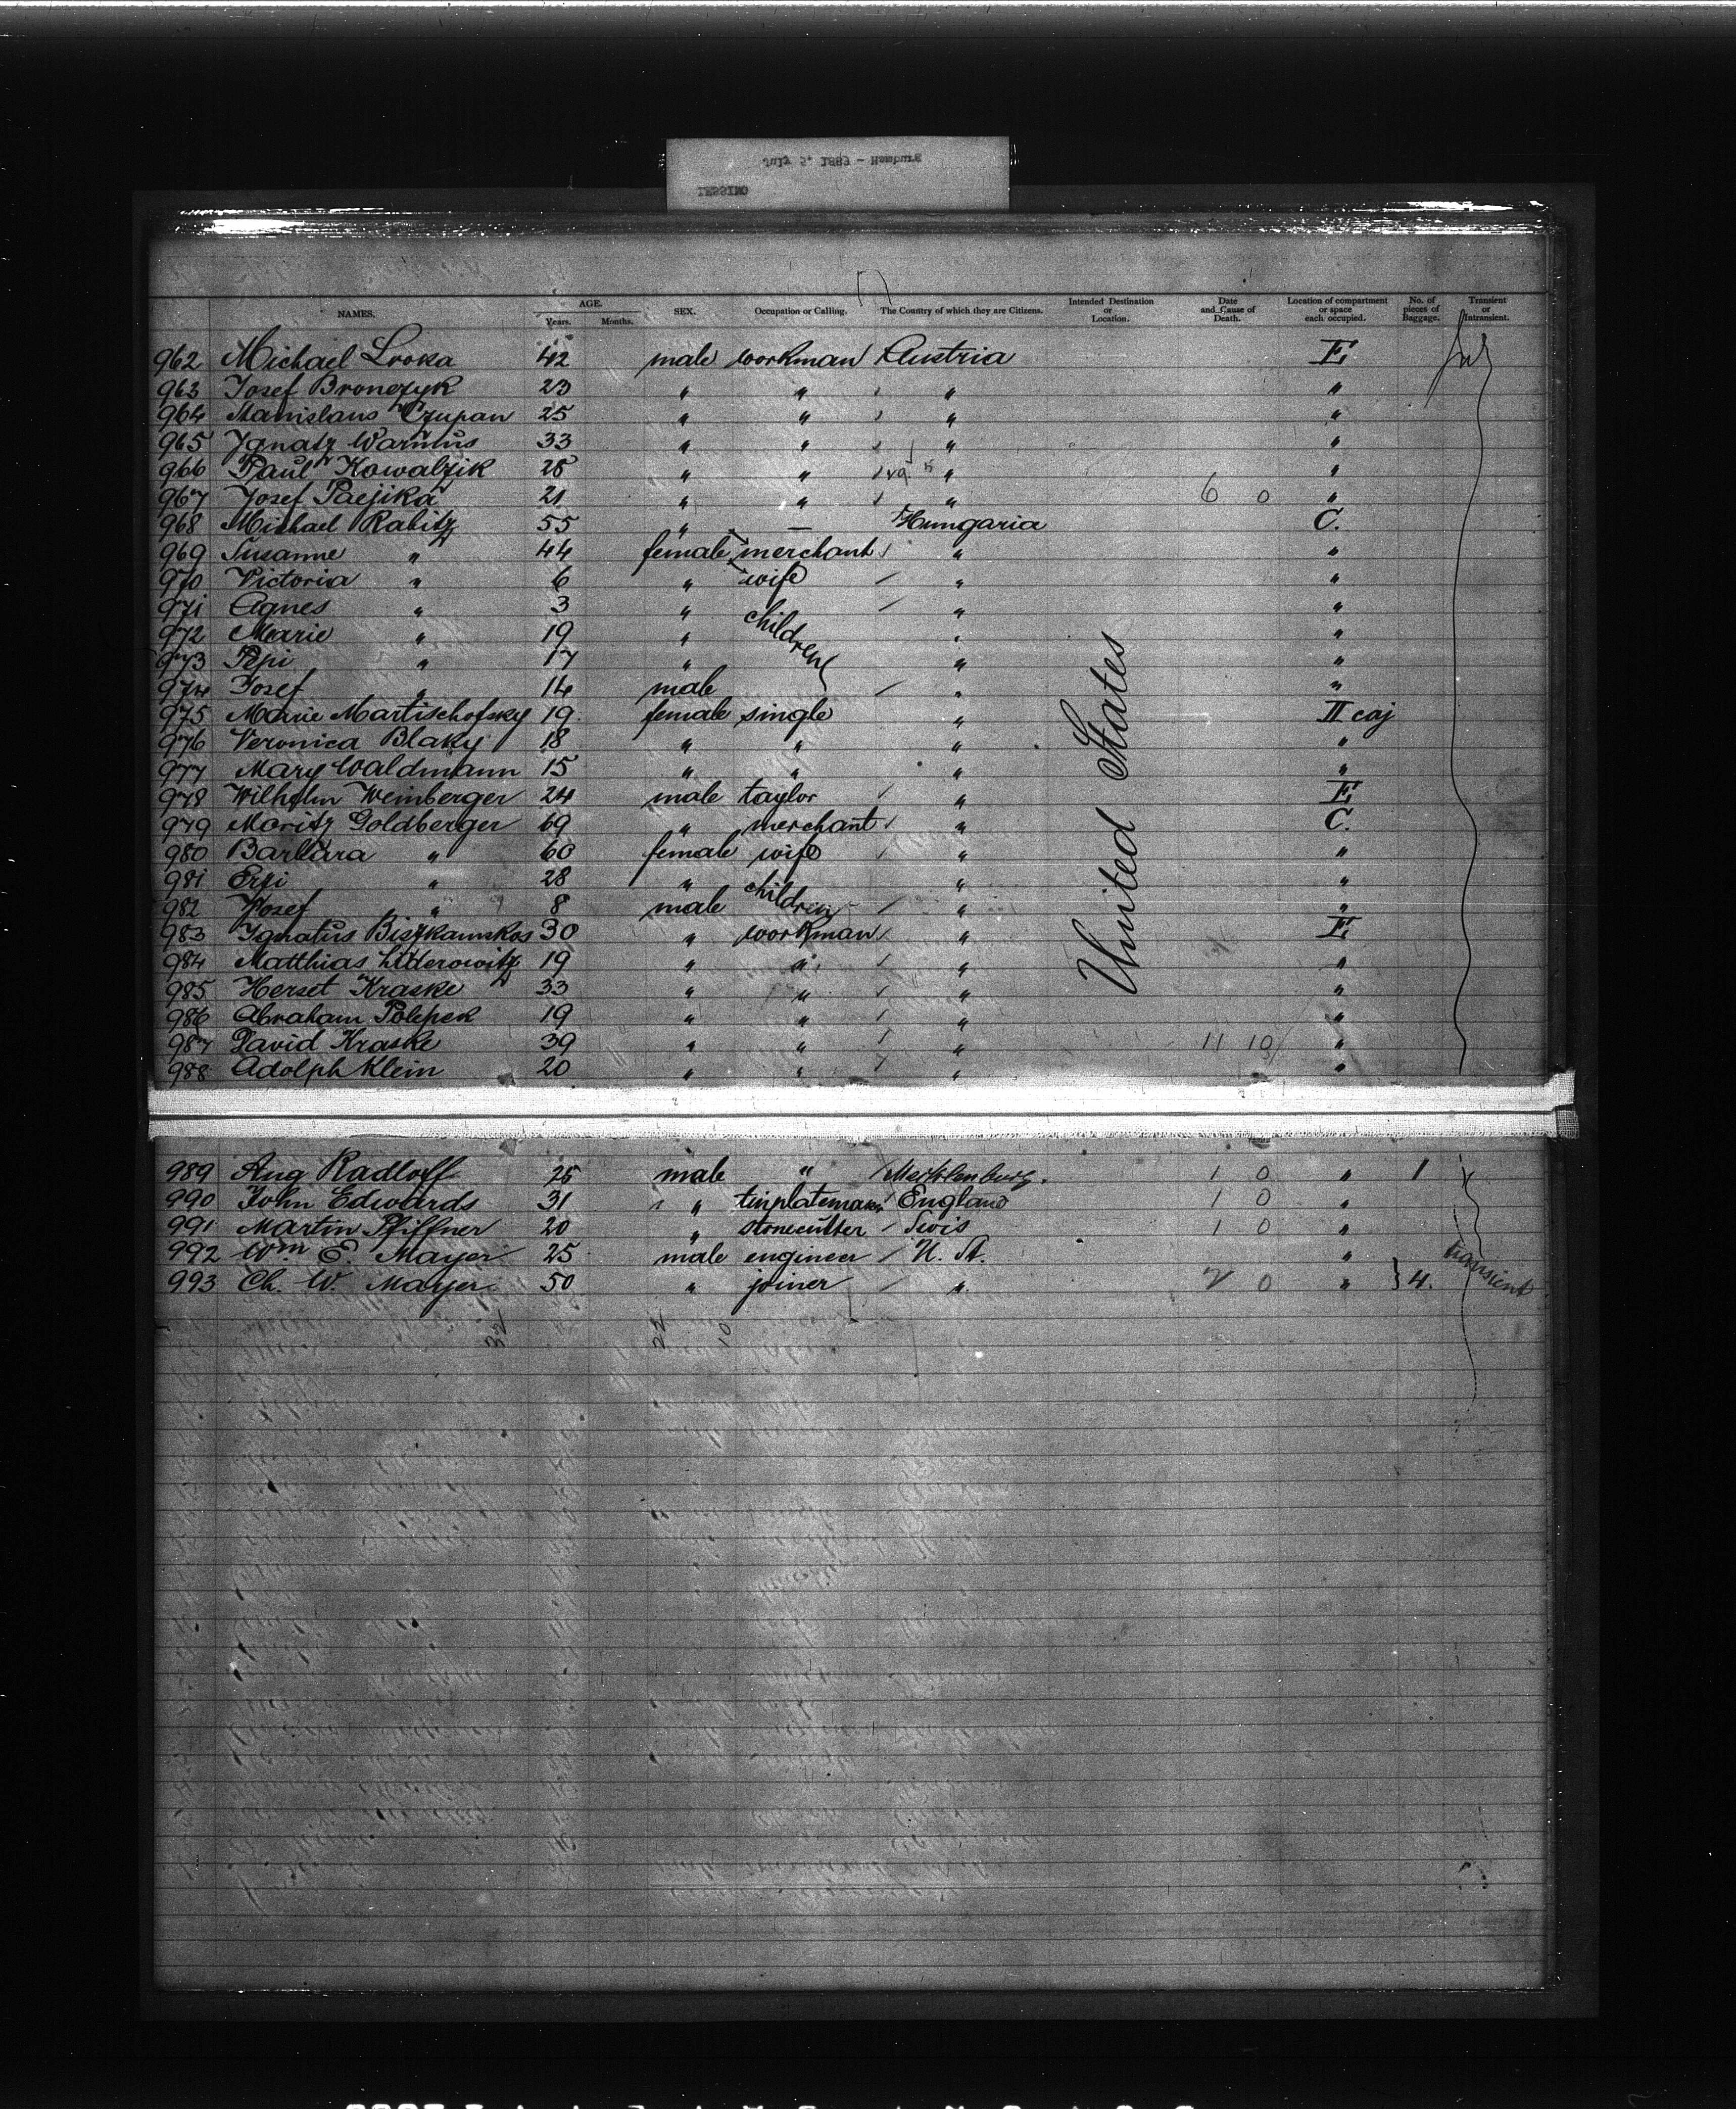 July 5, 1883 - Hamburg
LESSING
NAMES. AGE. Years. Months. SEX. Occupation or Calling. The Country of which they are Citizens. Intended Destination or Location. Date and Cause of Death. Location of compartment or space each occupied. No. of pieces of Baggage. Transient or Intransient.
962 Michael Sroka 42 male workman Austria E
963 Josef Bronczyk 23 " " " "
964 Stanislaus Czupan 25 " " " "
965 Ignatz Warmus 33 " " " "
966 Paul Kowalzik 25 " " " "
967 Josef 21 " " " 6 0 "
968 Michael Rabitz 55 " — Hungaria C.
969 Susanne " 44 female merchant " "
970 Victoria " 6 " wife " "
971 Agnes " 3 " children " "
972 Marie " 19 " " "
973 Pepi " 17 " " "
974 Josef " 14 male " "
975 Marie Martischofsky 19 female single " II caj
976 Veronica Blaky 18 " " " "
977 Mary Waldmann 15 " " " "
978 Wilhelm Weinberger 24 male taylor " E
979 Moritz Goldberger 69 " merchant " C.
980 Barbara " 60 female wife " "
981 " 28 " children " "
982 Josef " 8 male " "
983 Ignatus 30 " workman " E
984 Matthias 19 " " " "
985 Herset Kraske 33 " " " "
986 Abraham 19 " " " "
987 David Kraske 39 " " " 11 10 "
988 Adolph Klein 20 " " " "
United States
989 Aug Radloff 25 male " Mecklenburg. 1 0 " 1
990 John Edwards 31 " England 1 0 "
991 Martin Pfiffner 20 " stonecutter Swis 1 0 "
992 Wm E. Mayer 25 male engineer U. St. "
993 Ch. W. Mayer 50 " joiner " 2 0 " } 4.
transient
32 22 10